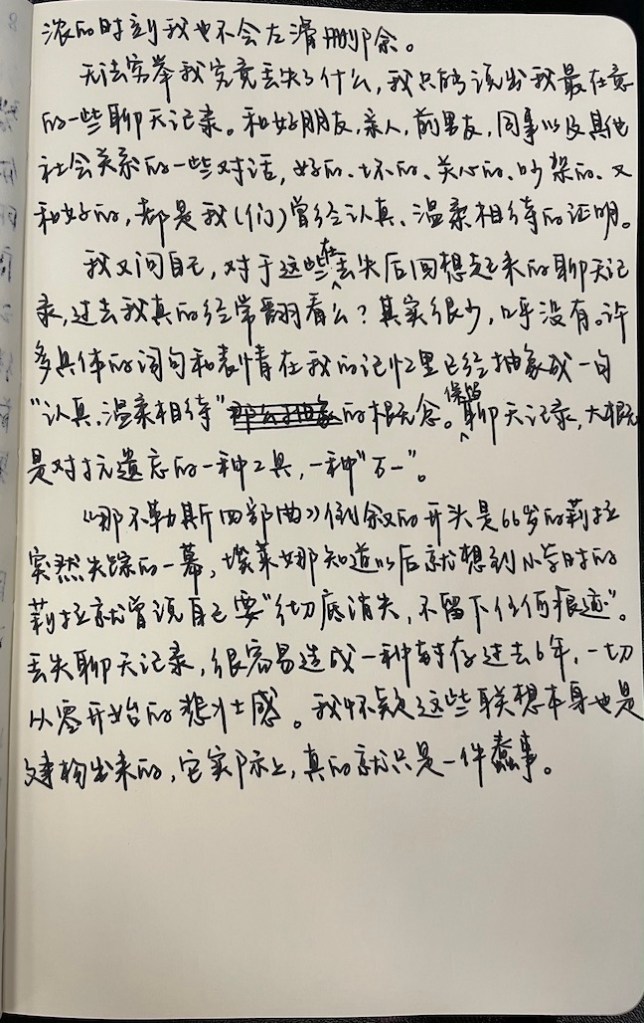 浓的时刻我也不会左滑删除。
无法穷举我究竟丢失了什么，我只能说出我最在意
的一些聊天记录。和好朋友，亲人，前男友，同事以及其他
社会关系的一些对话，好的、坏的、关心的、吵架的、又
和好的，都是我(们)曾经认真、温柔相待的证明。
我又问自己，对于这些在丢失后回想起来的聊天记
录，过去我真的经常翻看么？其实很少，几乎没有。许
多具体的词句和表情在我的记忆里已经抽象成一句
“认真、温柔相待”的概念。保留聊天记录，大概
是对抗遗忘的一种工具，一种“万一”。
《那不勒斯四部曲》倒叙的开头是66岁的莉拉
突然失踪的一幕，埃莱娜知道以后就想到小学时的
莉拉就曾说自己要“彻底消失，不留下任何痕迹”。
丢失聊天记录，很容易造成一种封存过去6年，一切
从零开始的悲壮感。我怀疑这些联想本身也是
建构出来的，它实际上，真的就只是一件蠢事。